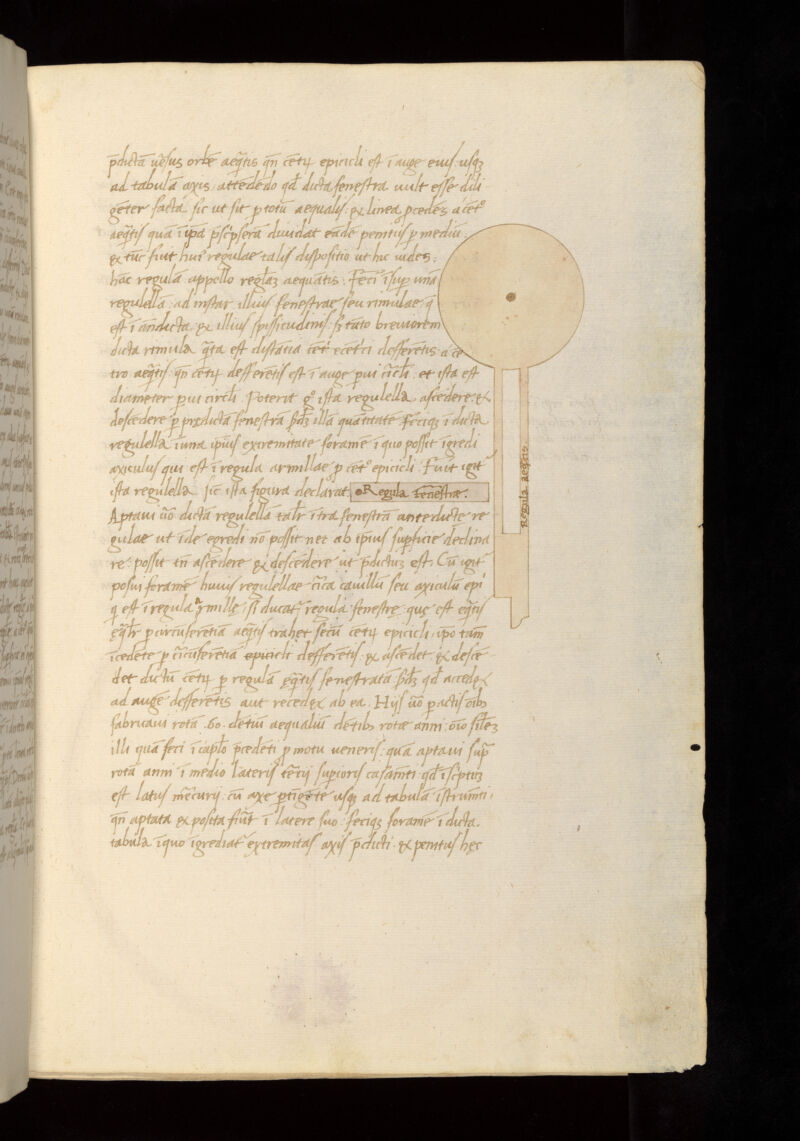 p̄dictā ūsus orbē aeq̄tis qn̄ cētꝝ epicicli est ī auge eius usqꝫ
ad tabulā axis attēdēdo qd̓ dicta fenestra uult esse dili
gēter facta sic ut sit ꝑ totū aequalis: & linea p̄cedēs a cēt᷒
aeq̄tis quā īip̄a
diuidat eādē penit᷒ ꝑ mediū:
& tūc fuit hui᷒ regulae talis dispositio ut hic uides:
hāc regulā appello
aequātis. Feci īsuꝑ unā
regulellā ad instar illius fenestrae seu rimulae q̄
est ī andicta & illius spissitudinis: sꝫ tāto breuiorem
dicta rimula q̄ta est distācia cēt᷒ ecēt᷒ci defferētis a cē
tro aeq̄tis: qn̄ cētꝝ defferētis est ī auge ꝑui ćicl̄i: et ista est
diameter ꝑui circl̄i. Poterit gͦ ista regulella ascēdere &
descēdere ꝑ predictā fenestrā
illā quātitatē. Feciqꝫ ī dicta
regulella ī una ip̄ius extremitate foramē ī quo possit īgredi
axiculus qui est ī regula armillae ꝑ cēt᷒ epicicli. Fuit igit᷒
ista regulella sic ista figura declarat. Regula fenestrae.
Aptaui ūo dictā regulellā talr̄ ītra fenestrā antedicte re
gulae ut īde egredi nō possit nec ab ip̄ius suꝑficie declina
re: possit tn̄ ascēdere & descēdere ut p̄dictuꝫ est. Cū igit᷒
posui foramē huius regulellae ćica cauillū seu axiculū epi
q̄ est ī regula armille, si ducat᷒ regula fenestre, quę est eq̄tis
eq̄lr̄ ꝑ circūferētiā aeq̄tis trahet secū cētꝝ epicicli, ip̄o tam̄
īcedēte ꝑ ćicūferētiā epicicli defferētis, & ascēdet & descē
det dictū cētꝝ ꝑ regulā eq̄tis fenestratā
qd̓
ad augē defferētis aut
ab ea. Hijs ūo ꝑactis oīb᷒
fabricaui rotā .60. dētiū aequaliū dētib᷒ rotae anni, oīo siłeꝫ
illi quā feci ī capło p̄cedēti ꝑ motu ueneris: quā aptaui supͣ
rotā anni ī medio lateris tētij suꝑioris casamti: qd̓ īsc̄ptuꝫ
est latus mēcurij, cū axe ꝑtīgēte usqꝫ ad tabulā īstrumti,
qn̄ aptata & posita fiūt ī latere suo: feciqꝫ foramē ī dicta
tabula īquo īgrediat᷒ extremitas axis p̄dicti, & penitus hęc
Regula aeq̄tis